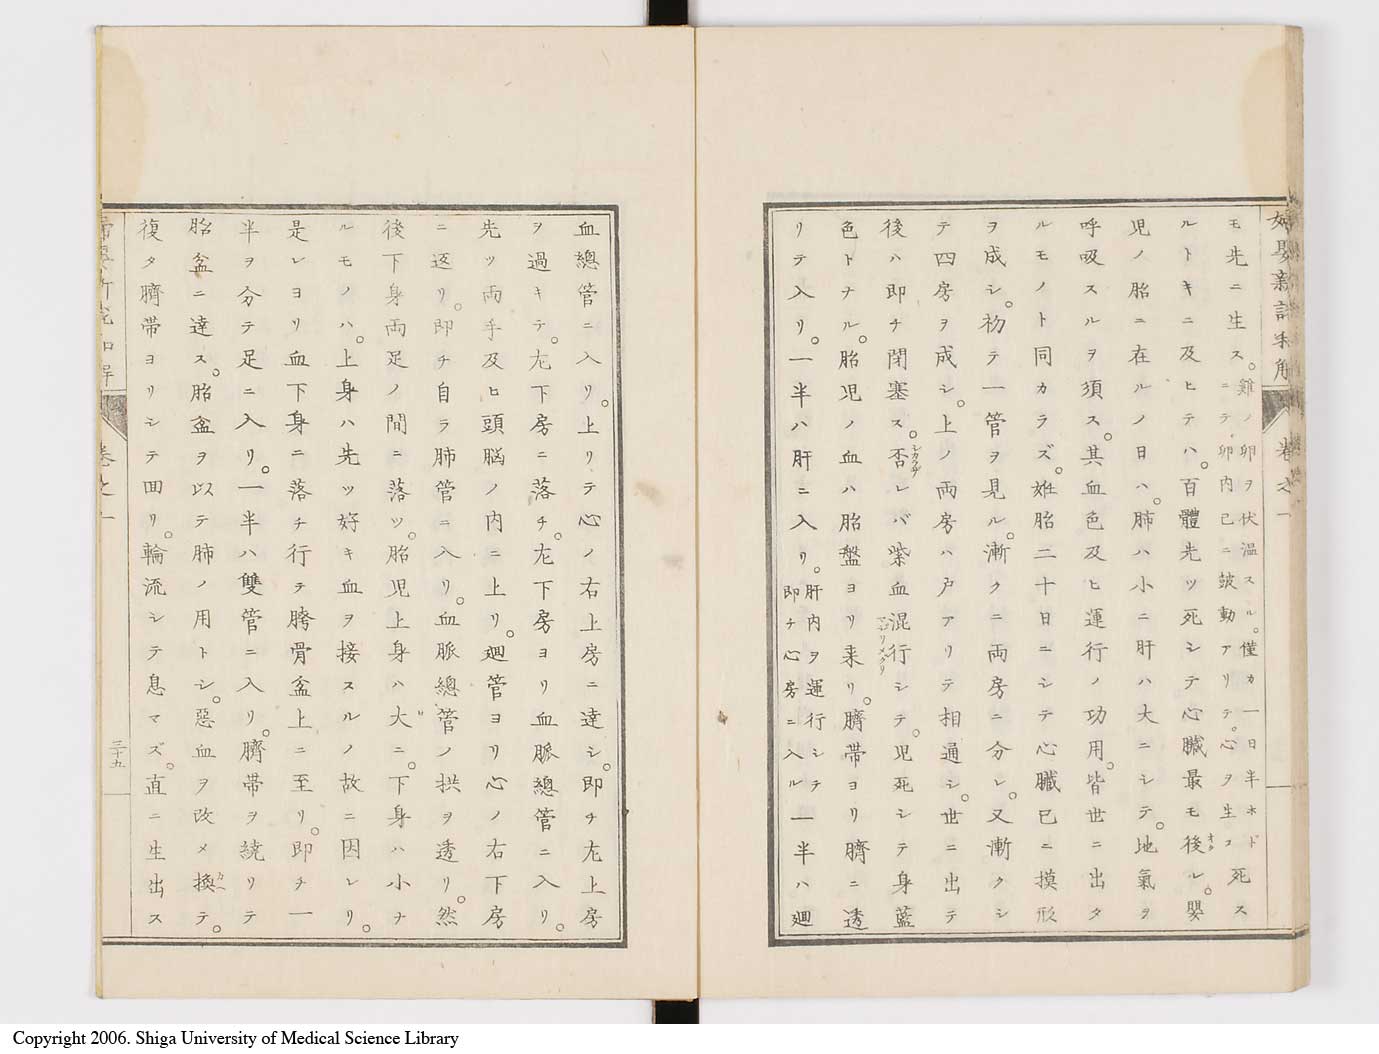 モ先ニ生ス。雞ノ卵ヲ伏温スル。僅カ一日半ホド
ニテ卵内已ニ皷動アリテ。心ヲ生ス死ス
ルトキニ及ヒテハ。百體先ツ死シテ心臓最モ後オクル。嬰
児ノ胎ニ在ルノ日ハ。肺ハ小ニ肝ハ大ニシテ。地氣ヲ
呼吸スルヲ須ス。其血色及ヒ運行ノ功用。皆世ニ出タ
ルモノト同カラズ。姙胎二十日ニシテ心臓已ニ摸形
ヲ成シ。初テ一管ヲ見ル。漸クニ両房ニ分レ。又漸クシ
テ四房ヲ成シ。上ノ両房ハ戸アリテ相通シ。世ニ出テ
後ハ即チ閉塞ス。否シカラザレバ紫血混行シテ。児死シテ身藍
色トナル。胎児ノ血ハ胎盤ヨリ来リ。臍帯ヨリ臍ニ透
リテ入リ。一半ハ肝ニ入リ。肝内ヲ運行シテ
即チ心房ニ入ル一半ハ廻
血總管ニ入リ。上リテ心ノ右上房ニ達シ。即チ左上房
ヲ過キテ。左下房ニ落チ。左下房ヨリ血脈總管ニ入リ。
先ツ両手及ヒ頭脳ノ内ニ上リ。廻管ヨリ心ノ右下房
ニ返リ。即チ自ラ肺管ニ入リ。血脈總管ノ拱ヲ透リ。然
後下身両足ノ間ニ落ツ。胎児上身ハ大ニ。下身ハ小ナ
ルモノハ。上身ハ先ツ好キ血ヲ接スルノ故ニ因レリ。
是レヨリ血下身ニ落チ行テ胯骨盆上ニ至リ。即チ一
半ヲ分テ足ニ入リ。一半ハ雙管ニ入リ。臍帯ヲ繞リテ
胎盆ニ達ス。胎盆ヲ以テ肺ノ用トシ。惡血ヲ改メ換カヘテ。
復タ臍帯ヨリシテ回リ。輪流シテ息マズ。直ニ生出ス
三十五
Copyright 2006. Shiga University of Medical Science Library